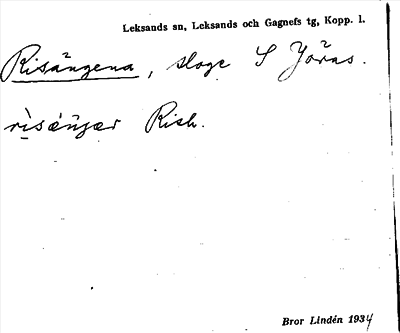 Leksands sn, Leksands och Gagnefs tg, Kopp. l.
Risängena, sloge S Jöras.
Rish.
Bror Lindén 1934